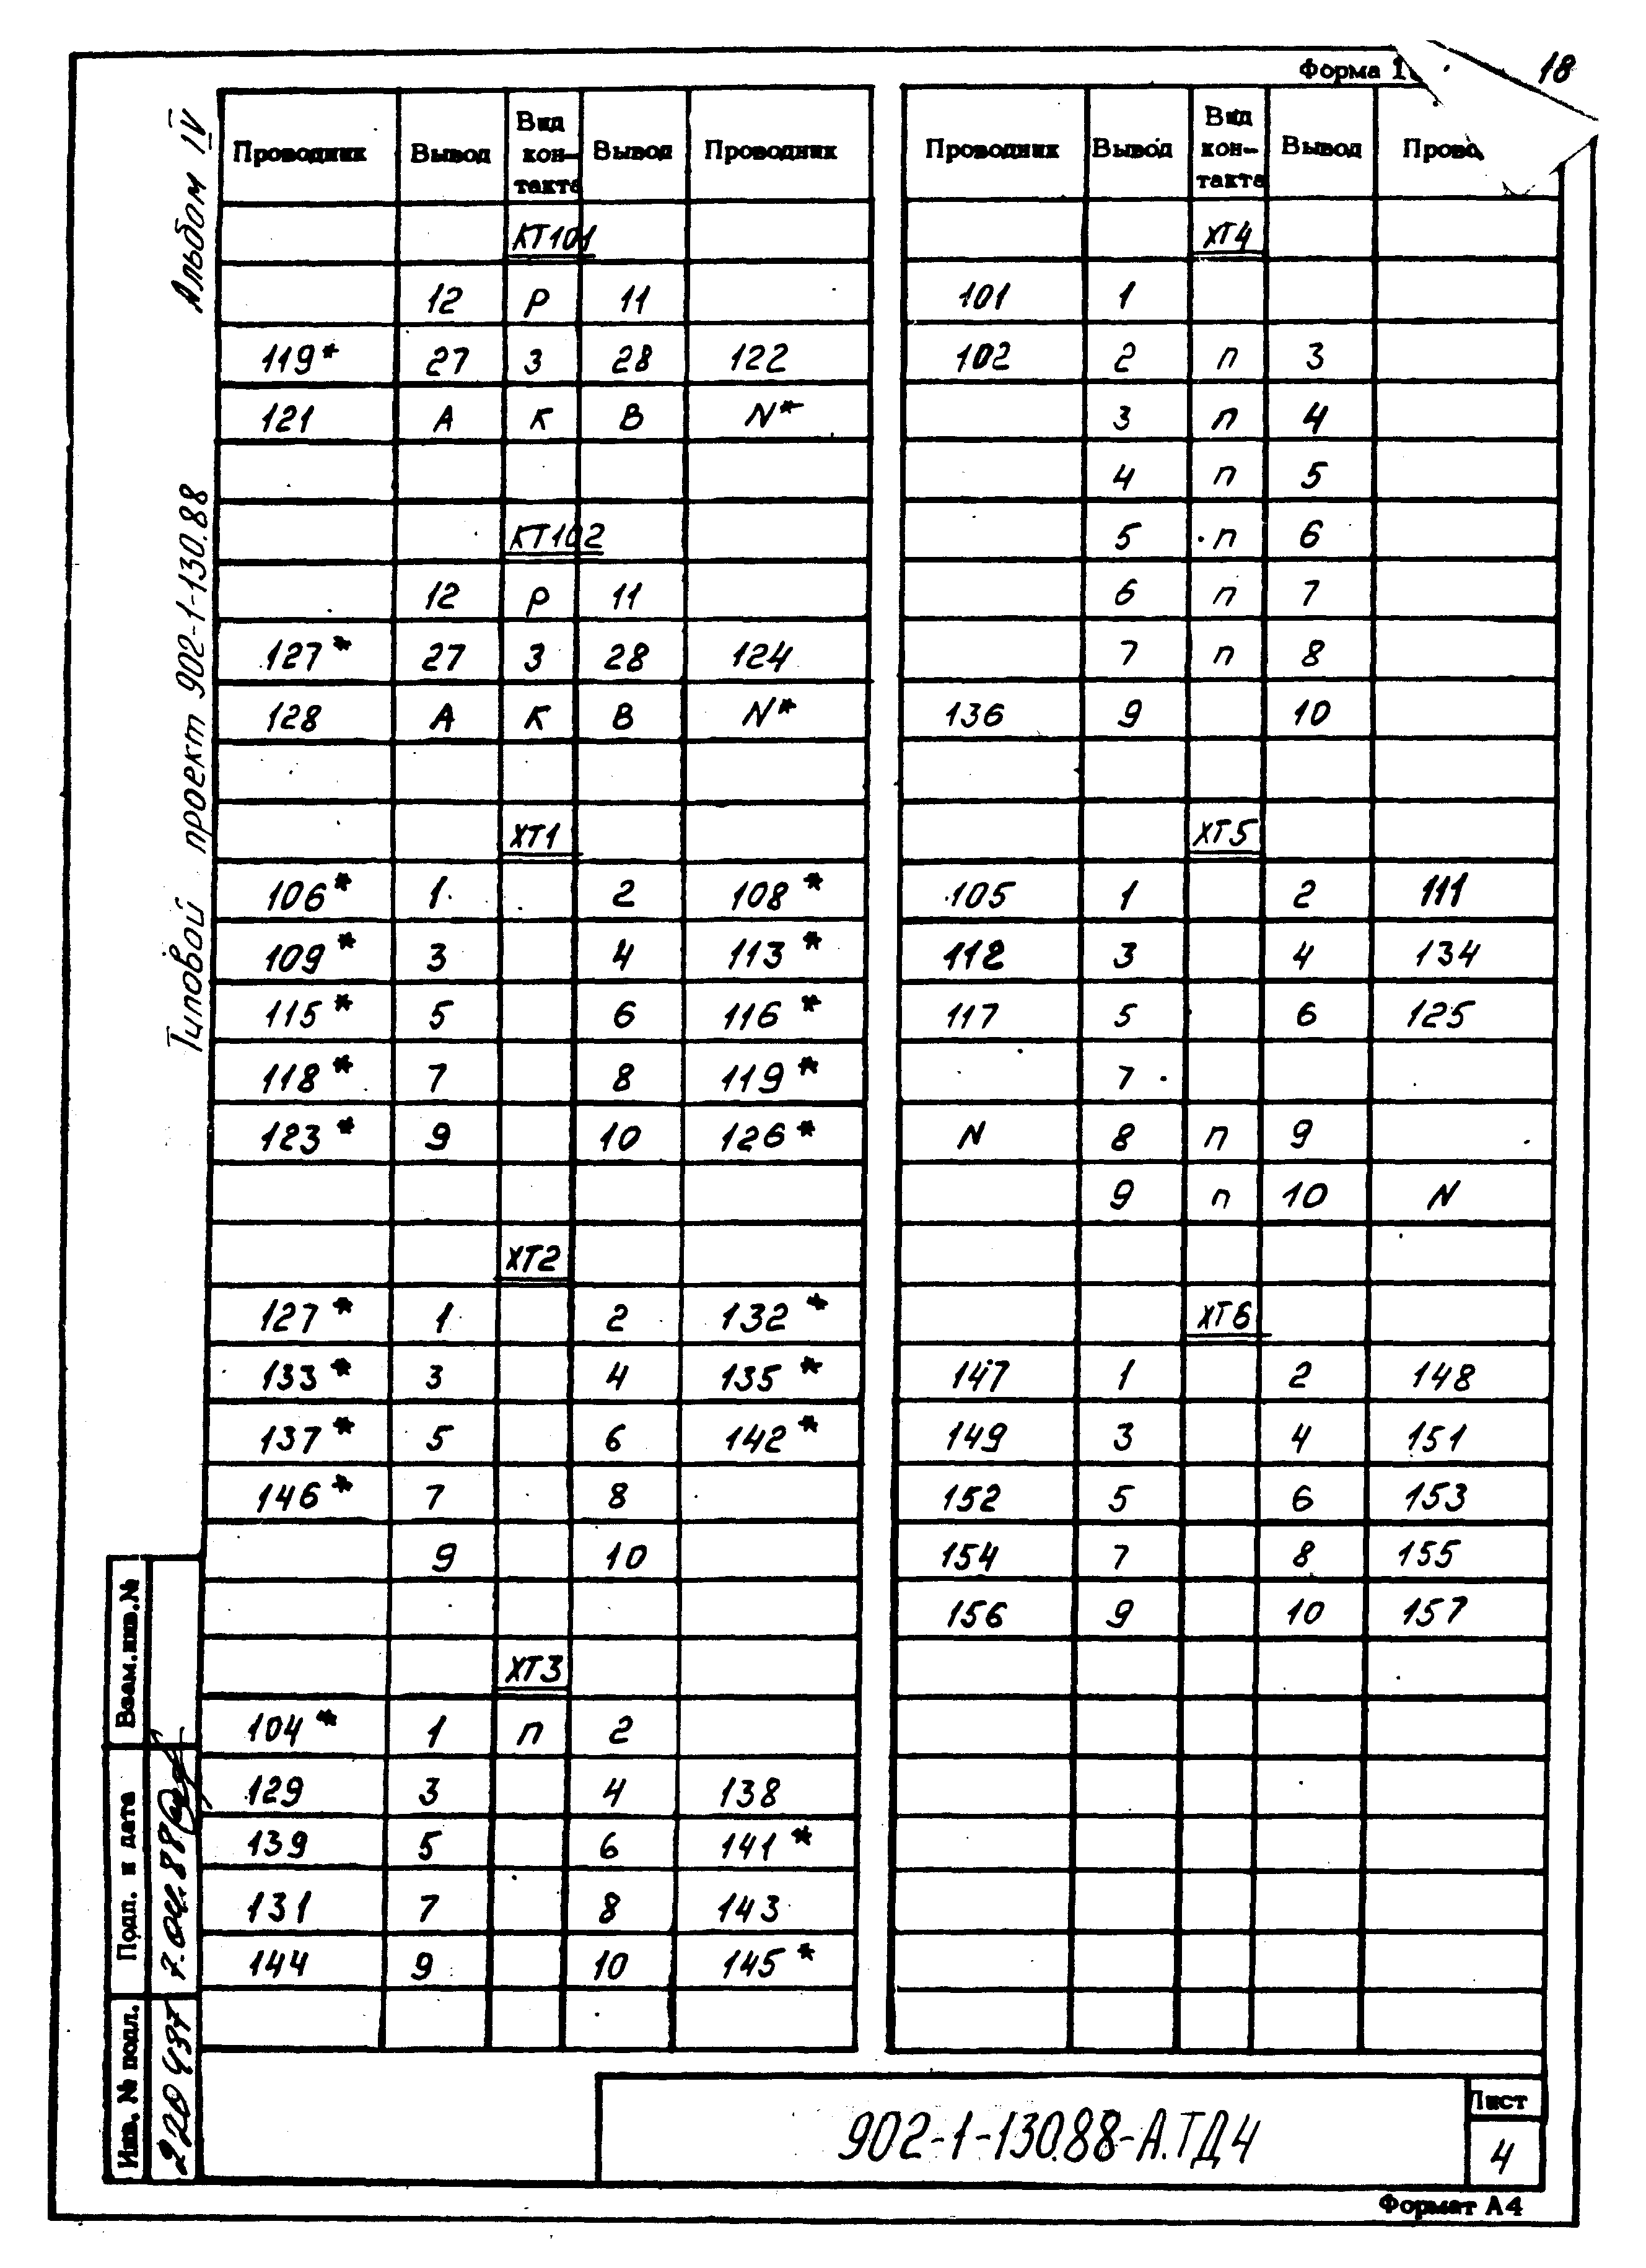 18
Форма
Альбом IV
Типовой проект 902-1-130.88
Проводник Вывод Вид кон-такта Вывод Проводник
КТ101
12 Р 11
119* 27 З 28 122
121 А К В N*
КТ102
12 Р 11
127* 27 З 28 124
128 А К В N*
ХТ1
106* 1 2 108*
109* 3 4 113*
115* 5 6 116*
118* 7 8 119*
123* 9 10 126*
ХТ2
127* 1 2 132*
133* 3 4 135*
137* 5 6 142*
146* 7 8
9 10
ХТ3
104* 1 п 2
129 3 4 138
139 5 6 141*
131 7 8 143
144 9 10 145*
Проводник Вывод Вид кон-такта Вывод
ХТ4
101 1
102 2 п 3
3 п 4
4 п 5
5 п 6
6 п 7
7 п 8
136 9 10
ХТ5
105 1 2 111
112 3 4 134
117 5 6 125
7
N 8 п 9
9 п 10 N
ХТ6
147 1 2 148
149 3 4 151
152 5 6 153
154 7 8 155
156 9 10 157
Взам.инв.№
Подп. и дата
Инв. № подл.
902-1-130.88-А.ТД4
Лист
4
Формат А4